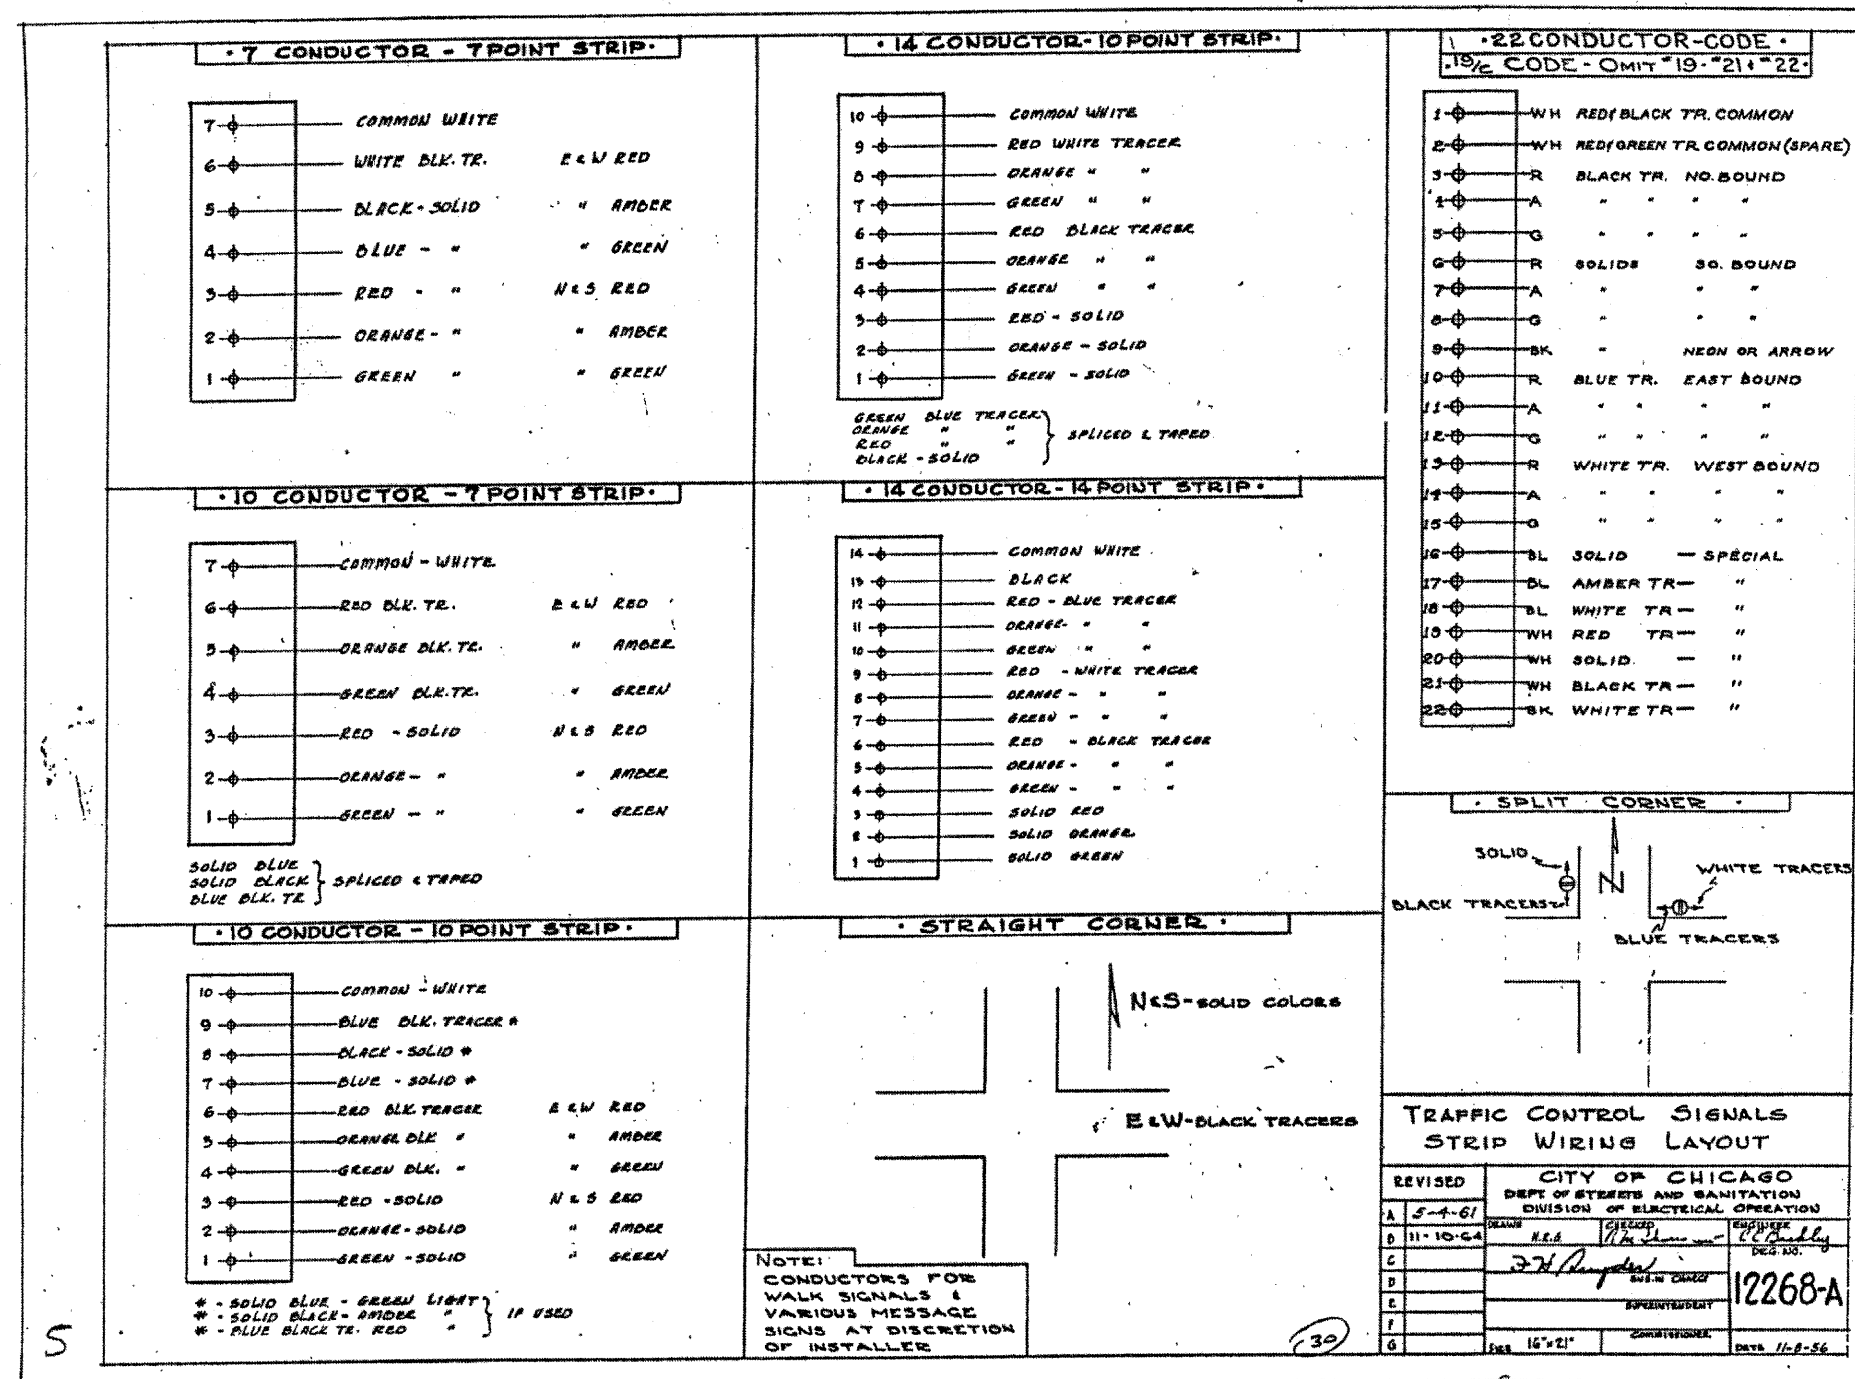 · 7 CONDUCTOR - 7 POINT STRIP ·
7 COMMON WHITE
6 WHITE BLK. TR. E & W RED
5 BLACK - SOLID " AMBER
4 BLUE - " " GREEN
3 RED - " N & S RED
2 ORANGE - " " AMBER
1 GREEN " " GREEN
· 10 CONDUCTOR - 7 POINT STRIP ·
7 COMMON - WHITE
6 RED BLK. TR. E & W RED
5 ORANGE BLK. TR. " AMBER
4 GREEN BLK. TR. " GREEN
3 RED - SOLID N & S RED
2 ORANGE - " " AMBER
1 GREEN - " " GREEN
SOLID BLUE
SOLID BLACK } SPLICED & TAPED
BLUE BLK. TR.
· 10 CONDUCTOR - 10 POINT STRIP ·
10 COMMON - WHITE
9 BLUE BLK. TRACER *
8 BLACK - SOLID *
7 BLUE - SOLID *
6 RED BLK. TRACER E & W RED
5 ORANGE BLK " " AMBER
4 GREEN BLK. " " GREEN
3 RED - SOLID N & S RED
2 ORANGE - SOLID " AMBER
1 GREEN - SOLID " GREEN
* - SOLID BLUE - GREEN LIGHT
* - SOLID BLACK - AMBER " } IF USED
* - BLUE BLACK TR. RED "
5
· 14 CONDUCTOR - 10 POINT STRIP ·
10 COMMON WHITE
9 RED WHITE TRACER
8 ORANGE " "
7 GREEN " "
6 RED BLACK TRACER
5 ORANGE " "
4 GREEN " "
3 RED - SOLID
2 ORANGE - SOLID
1 GREEN - SOLID
GREEN BLUE TRACER
ORANGE " "
RED " " } SPLICED & TAPED
BLACK - SOLID
· 14 CONDUCTOR - 14 POINT STRIP ·
14 COMMON WHITE
13 BLACK
12 RED - BLUE TRACER
11 ORANGE - " "
10 GREEN " "
9 RED - WHITE TRACER
8 ORANGE - " "
7 GREEN - " "
6 RED - BLACK TRACER
5 ORANGE - " "
4 GREEN - " "
3 SOLID RED
2 SOLID ORANGE
1 SOLID GREEN
· STRAIGHT CORNER ·
N & S - SOLID COLORS
E & W - BLACK TRACERS
NOTE:
CONDUCTORS FOR
WALK SIGNALS &
VARIOUS MESSAGE
SIGNS AT DISCRETION
OF INSTALLER
30
· 22 CONDUCTOR - CODE ·
· 19/C CODE - OMIT #19 - #21 & #22 ·
1 WH RED/BLACK TR. COMMON
2 WH RED/GREEN TR COMMON (SPARE)
3 R BLACK TR. NO. BOUND
4 A " " " "
5 G " " " "
6 R SOLIDS SO. BOUND
7 A " " "
8 G " " "
9 BK " NEON OR ARROW
10 R BLUE TR. EAST BOUND
11 A " " " "
12 G " " " "
13 R WHITE TR. WEST BOUND
14 A " " " "
15 G " " " "
16 BL SOLID - SPECIAL
17 BL AMBER TR - "
18 BL WHITE TR - "
19 WH RED TR - "
20 WH SOLID - "
21 WH BLACK TR - "
22 BK WHITE TR - "
· SPLIT CORNER ·
SOLID
N
WHITE TRACERS
BLACK TRACERS
BLUE TRACERS
TRAFFIC CONTROL SIGNALS
STRIP WIRING LAYOUT
REVISED
A 5-4-61
B 11-10-64
C
D
E
F
G
CITY OF CHICAGO
DEPT OF STREETS AND SANITATION
DIVISION OF ELECTRICAL OPERATION
DRAWN CHECKED ENGINEER
DRG. NO.
12268-A
ENG. IN CHARGE
SUPERINTENDENT
COMMISSIONER
SIZE 16"x21"
DATE 11-8-56